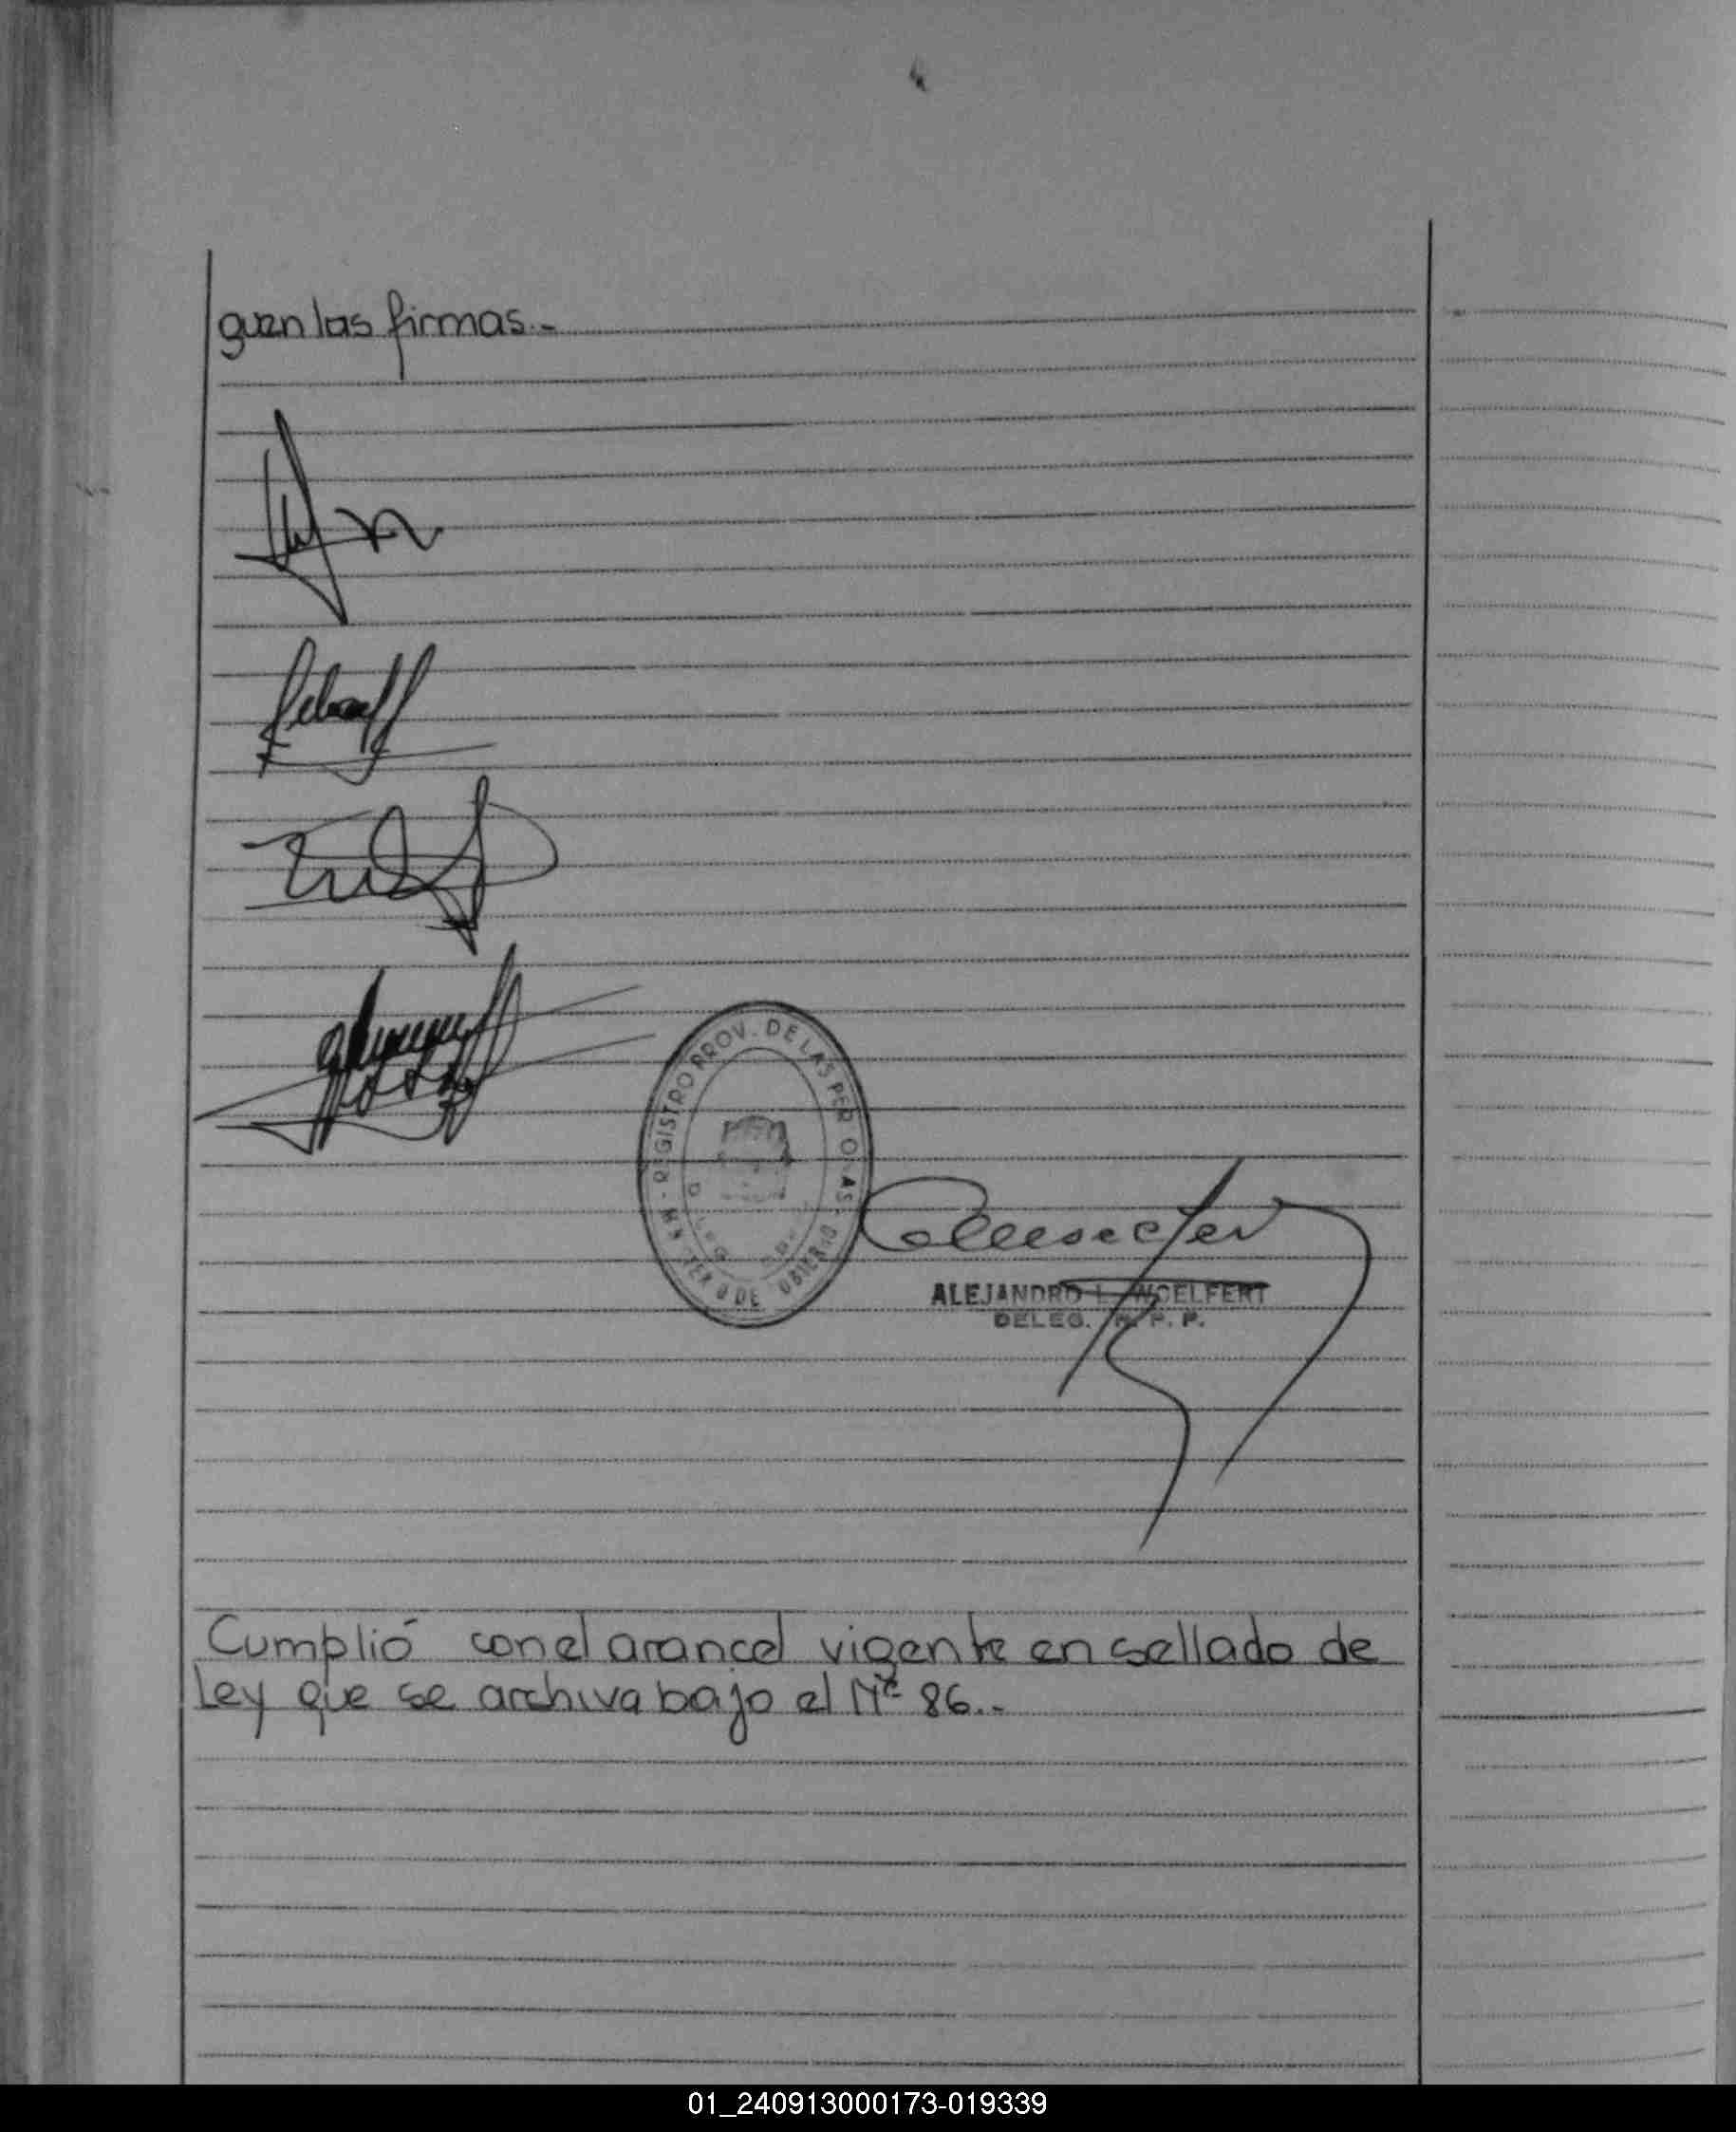 guen las firmas.-
REGISTRO PROV. DE LAS PER
ALEJANDRO L. WOELFERT
DELEG. R. P. P.
Cumplió con el arancel vigente en sellado de
Ley que se archiva bajo el Nº 86.-
01_240913000173-019339